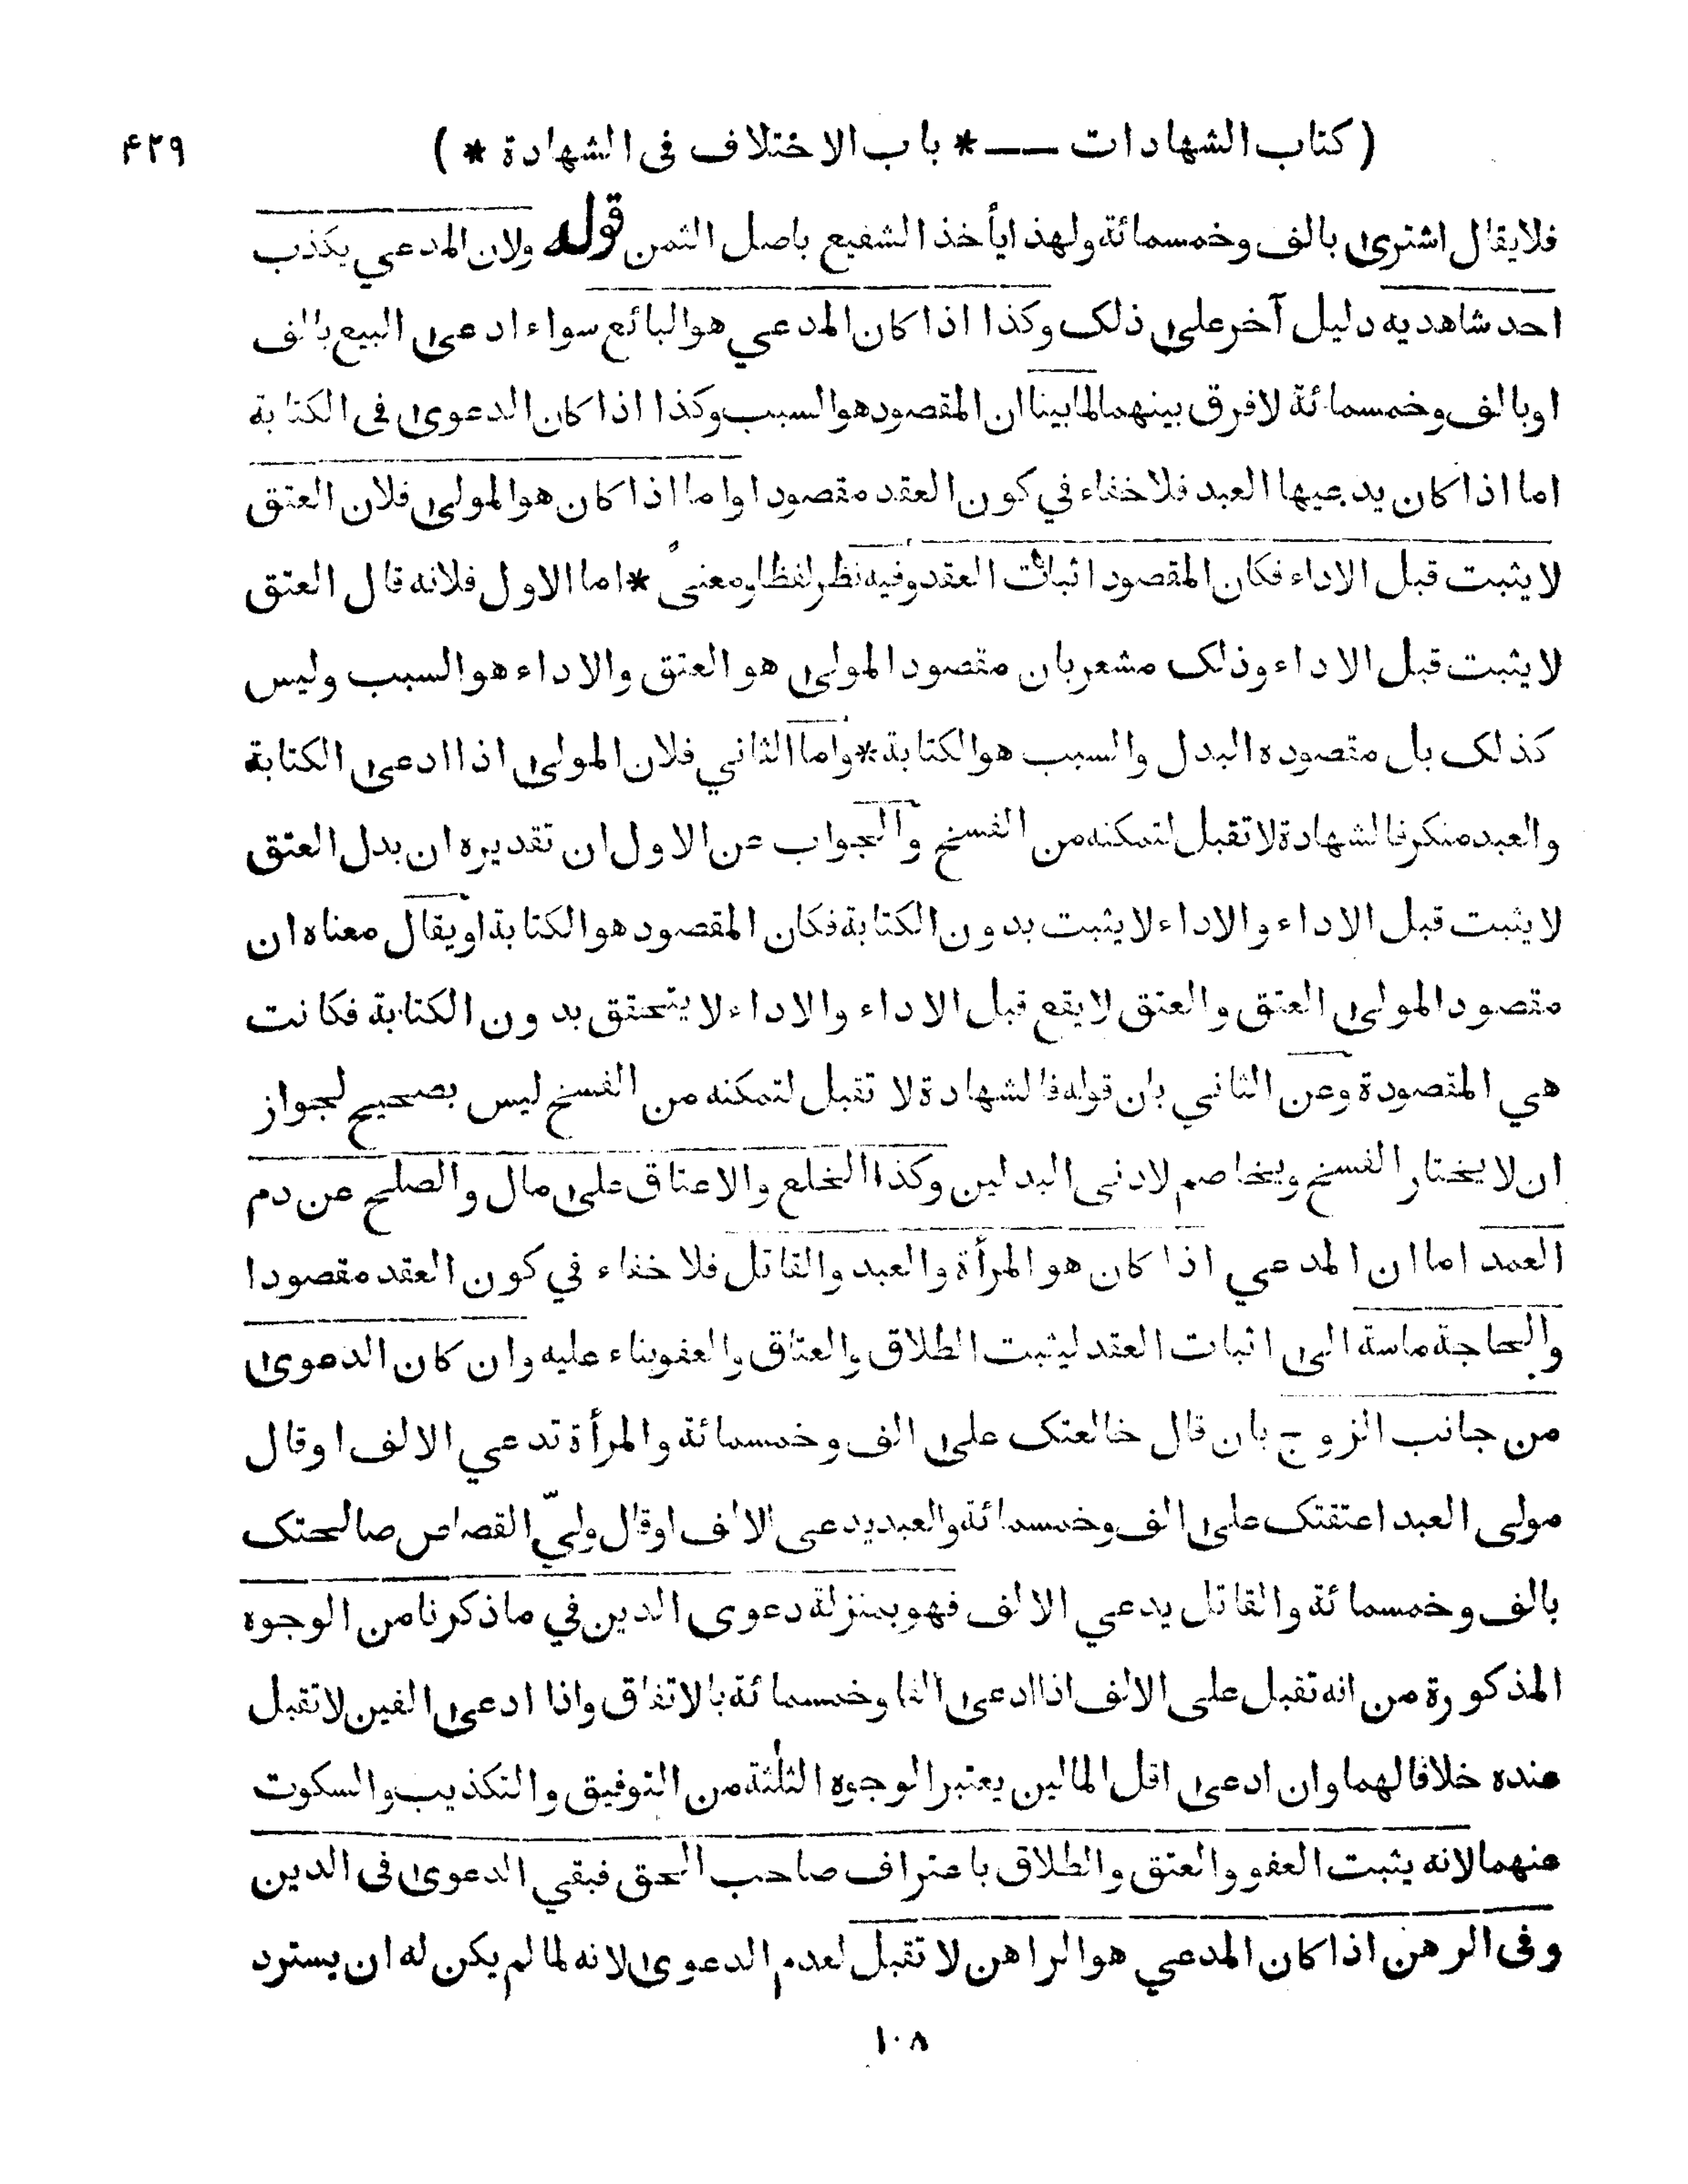 ( كتاب الشهادات —— * باب الاختلاف فى الشهادة * ) ۴۲۹
فلايقال اشترى بالف وخمسمائة ولهذا يأخذ الشفيع باصل الثمن قوله ولان المدعي يكذب
احد شاهديه دليل آخر على ذلك وكذا اذا كان المدعي هو البائع سواء ادعى البيع بالف
او بالف وخمسمائة لا فرق بينهما لما بينا ان المقصود هو السبب وكذا اذا كان الدعوى فى الكتابة
اما اذا كان يدعيها العبد فلا خفاء في كون العقد مقصودا واما اذا كان هو المولى فلان العتق
لا يثبت قبل الاداء فكان المقصود اثبات العقد وفيه نظر لفظا ومعنىً * اما الاول فلانه قال العتق
لا يثبت قبل الاداء وذلك مشعر بان مقصود المولى هو العتق والاداء هو السبب وليس
كذلك بل مقصوده البدل والسبب هو الكتابة * واما الثاني فلان المولى اذا ادعى الكتابة
والعبد منكر فالشهادة لا تقبل لتمكنه من الفسخ والجواب عن الاول ان تقديره ان بدل العتق
لا يثبت قبل الاداء والاداء لا يثبت بدون الكتابة فكان المقصود هو الكتابة او يقال معناه ان
مقصود المولى العتق والعتق لا يقع قبل الاداء والاداء لا يتحقق بدون الكتابة فكانت
هي المقصودة وعن الثاني بان قوله فالشهادة لا تقبل لتمكنه من الفسخ ليس بصحيح لجواز
ان لا يختار الفسخ ويخاصم لادنى البدلين وكذا الخلع والاعتاق على مال والصلح عن دم
العمد اما ان المدعي اذا كان هو المرأة والعبد والقاتل فلا خفاء في كون العقد مقصودا
والحاجة ماسة الى اثبات العقد ليثبت الطلاق والعتاق والعفو بناء عليه وان كان الدعوى
من جانب الزوج بان قال خالعتك على الف وخمسمائة والمرأة تدعي الالف او قال
مولى العبد اعتقتك على الف وخمسمائة والعبد يدعى الالف او قال وليّ القصاص صالحتك
بالف وخمسمائة والقاتل يدعي الالف فهو بمنزلة دعوى الدين في ما ذكرنا من الوجوه
المذكورة من انه تقبل على الالف اذا ادعى الفا وخمسمائة بالاتفاق واذا ادعى الفين لا تقبل
عنده خلافا لهما وان ادعى اقل المالين يعتبر الوجوه الثلثة من التوفيق والتكذيب والسكوت
عنهما لانه يثبت العفو والعتق والطلاق باعتراف صاحب الحق فبقي الدعوى فى الدين
وفى الرهن اذا كان المدعي هو الراهن لا تقبل لعدم الدعوى لانه لما لم يكن له ان يسترد
١٠٨